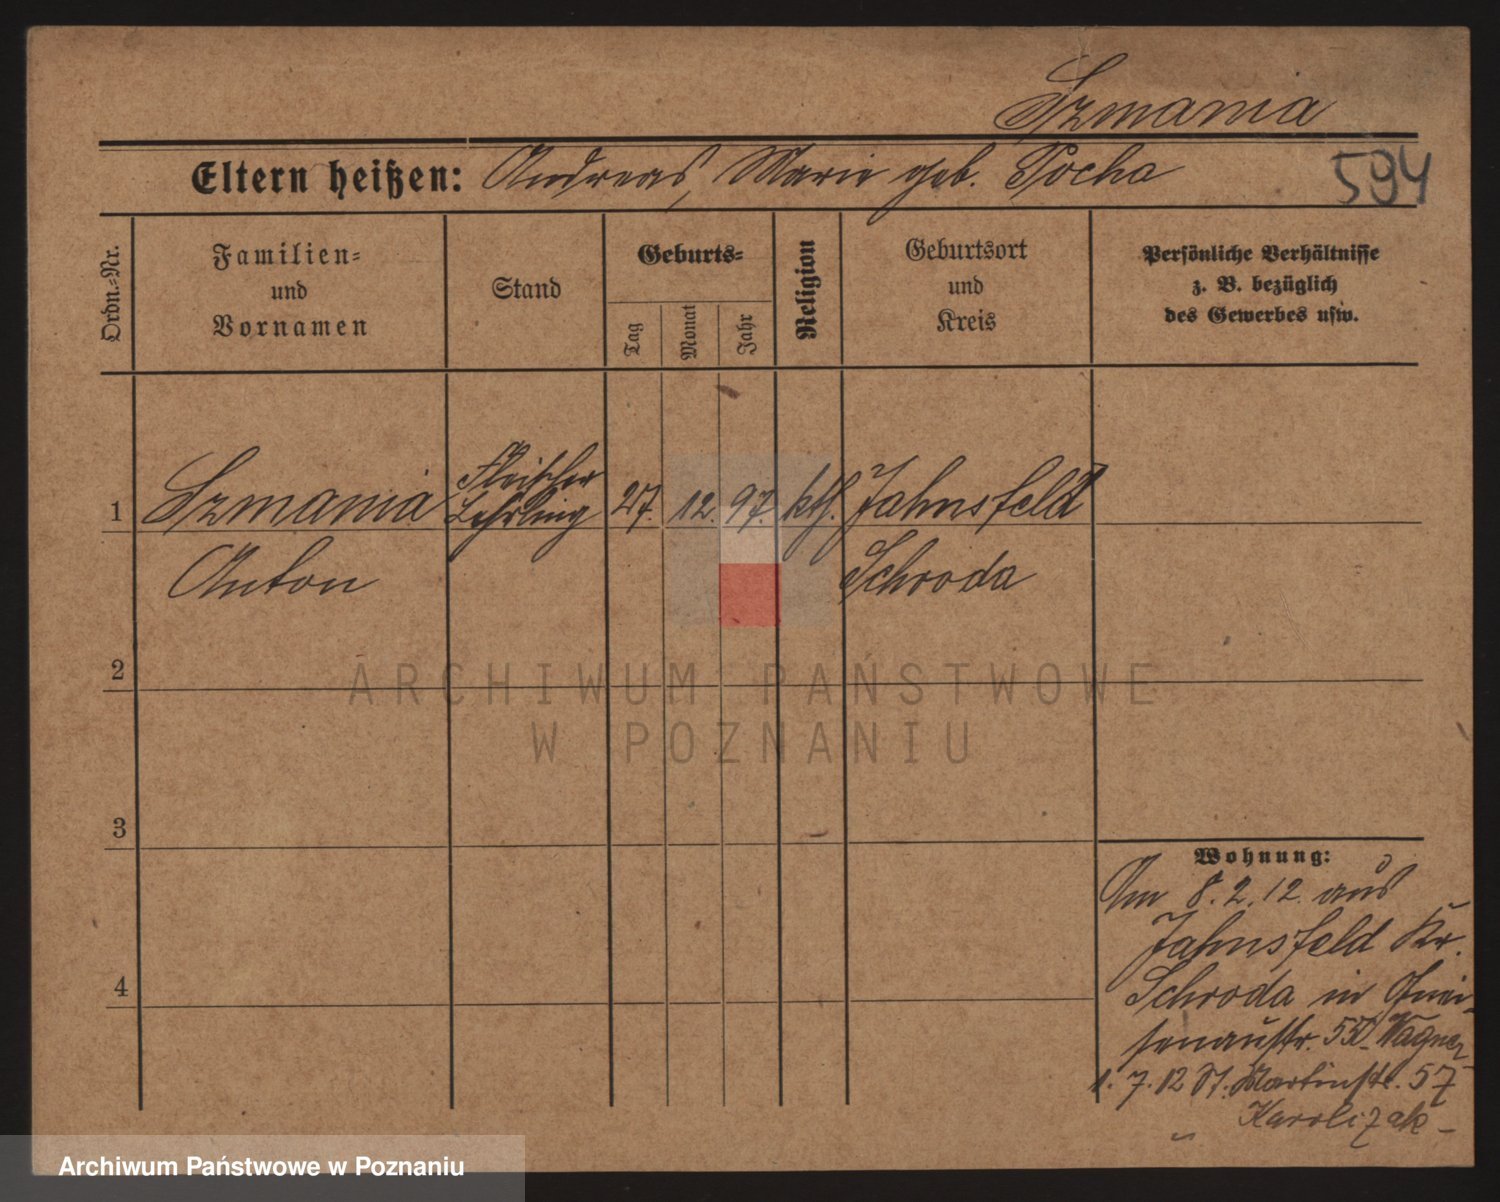 Szmania
Eltern heißen: Andreas, Marie geb. Pocha
594
Ordn.-Nr.
Familien-
und
Vornamen
Stand
Geburts-
Tag
Monat
Jahr
Religion
Geburtsort
und
Kreis
Persönliche Verhältnisse
z. B. bezüglich
des Gewerbes usw.
1 Szmania Fleischer Lehrling 27. 12. 97. kth. Jahnsfeld
Anton Schroda
2
3
4
Wohnung:
Am 8. 2. 12. aus
Jahnsfeld Kr.
Schroda in Gnei-
senaustr. Wagner
1. 7. 12 St. Martinstr. 57
Karolizak
ARCHIWUM PAŃSTWOWE
W POZNANIU
Archiwum Państwowe w Poznaniu